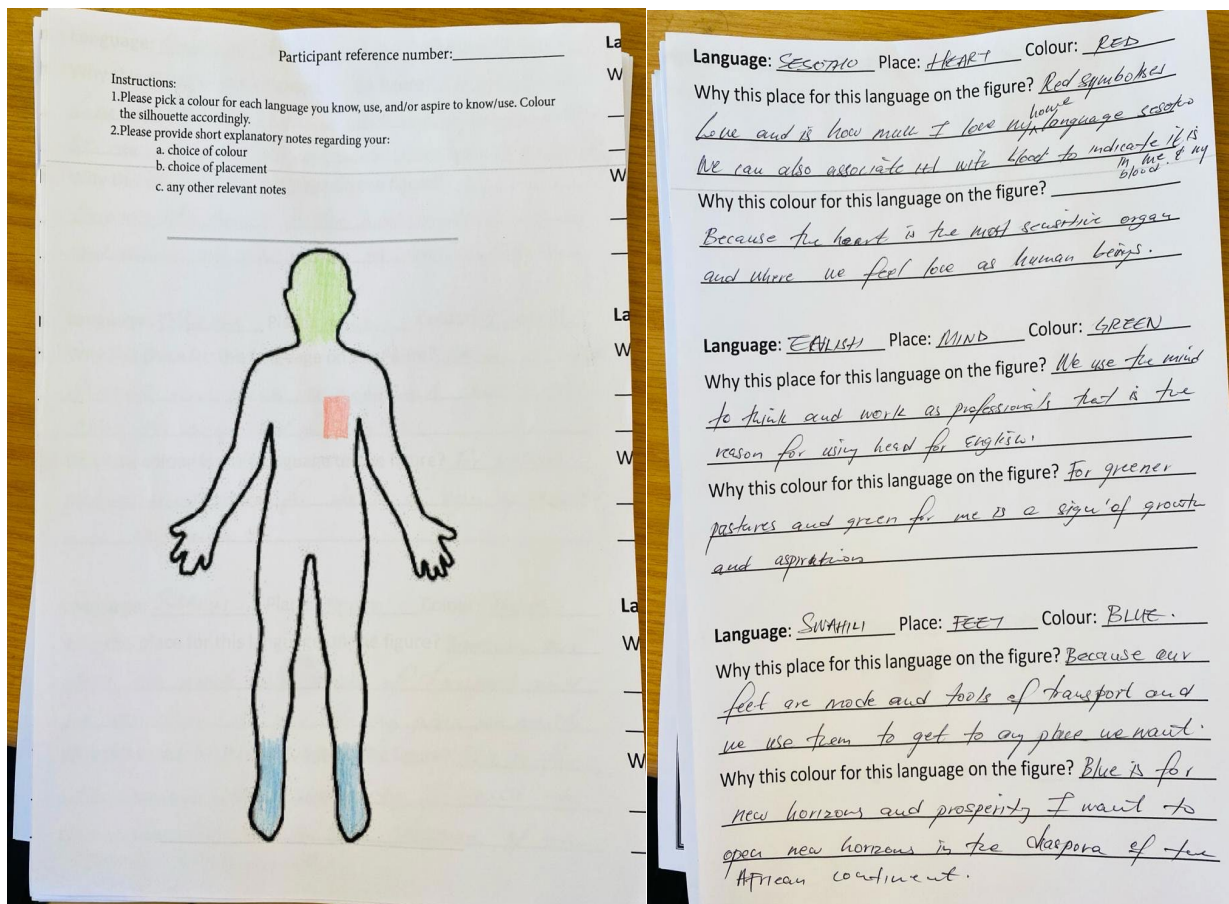 Participant reference number:
Instructions:
1.Please pick a colour for each language you know, use, and/or aspire to know/use. Colour
the silhouette accordingly.
2.Please provide short explanatory notes regarding your:
a. choice of colour
b. choice of placement
c. any other relevant notes
La
W
W
La
W
W
La
W
W
Language: SESOTHO Place: HEART Colour: RED
Why this place for this language on the figure? Red symbolises
Love and is how much I love my home language sesotho
We can also associate it with blood to indicate it is
in me & my
blood
Why this colour for this language on the figure?
Because the heart is the most sensitive organ
and where we feel love as human beings.
Language: ENGLISH Place: MIND Colour: GREEN
Why this place for this language on the figure? We use the mind
to think and work as professionals that is the
reason for using head for English.
Why this colour for this language on the figure? For greener
pastures and green for me is a sign of growth
and aspiration
Language: SWAHILI Place: FEET Colour: BLUE.
Why this place for this language on the figure? Because our
feet are mode and tools of transport and
we use them to get to any place we want.
Why this colour for this language on the figure? Blue is for
new horizons and prosperity I want to
open new horizons in the diaspora of the
African continent.